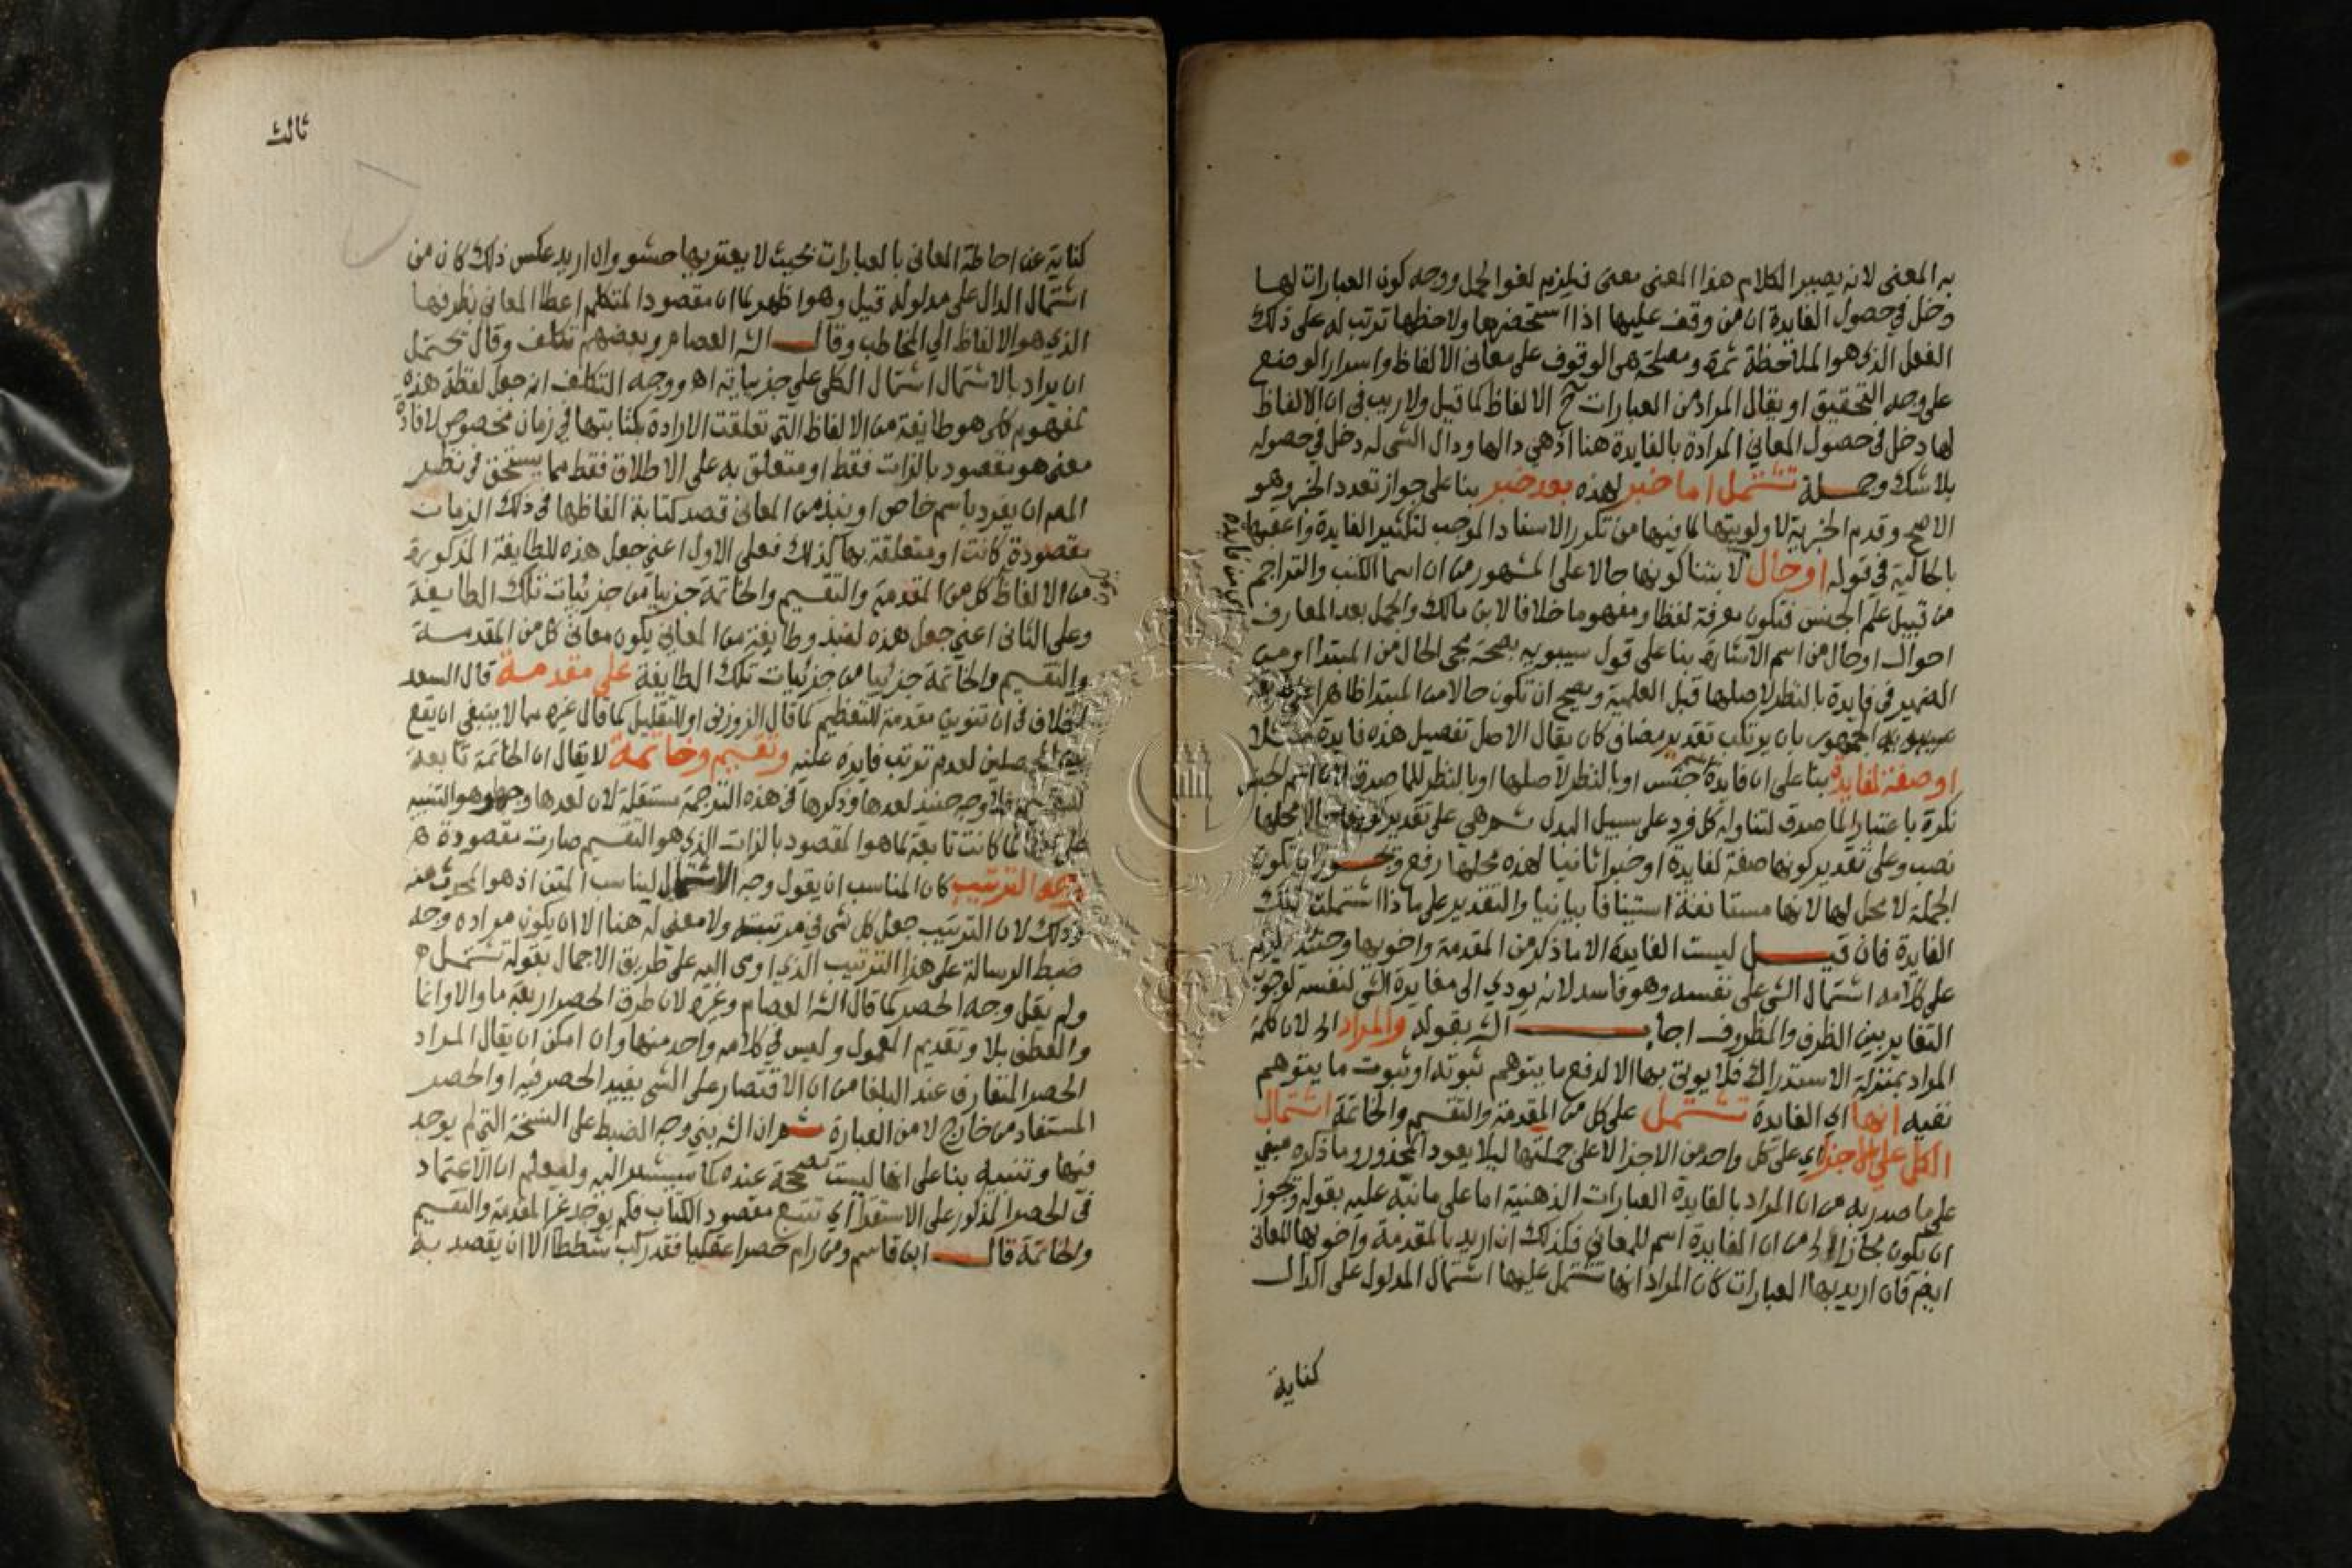 به المعنى لانه يصير الكلام هذا المعنى معنى فيلزم لغو الحمل ووجه كون العبارات لها
دخل في حصول الفايدة ان من وقف عليها اذا استحضرها ولاحظها ترتب له على ذلك
الفعل الذى هو الملاحظة ثمرة ومصلحة هى الوقوف على معانى الالفاظ واسرار الوضع
على وجه التحقيق او يقال المراد من العبارات ح الالفاظ كما قيل ولا ريب فى ان الالفاظ
لها دخل فى حصول المعاني المرادة بالفايدة هنا اذ هي دالها ودال الشى له دخل في حصوله
بلا شك وجملة تشتمل اما خبر لهذه بعد خبر بنا على جواز تعدد الخبر وهو
الاصح وقدم الخبرية لاولويتها لما فيها من تكرر الاسناد الموجب لتكثير الفايدة واعقبها
بالحالية فى قوله او حال لابتنا كونها حالا على المشهور من ان اسما الكتب والتراجم
من قبيل علم الجنس فتكون معرفة لفظا ومفهوما خلافا لابن مالك والجمل بعد المعارف
احوال او حال من اسم الاشارة بنا على قول سيبويه بصحة مجى الحال من المبتدا او من
الضمير فى فايدة بالنظر لاصلها قبل العلمية ويصح ان تكون حالا من المبتدا ظاهرا
الجمهور بان يرتكب تقدير مضاف كان يقال الاصل تفصيل هذه فايدة مثلا
او صفة لفايدة بنا على ان فايدة اسم جنس او بالنظر لاصلها او بالنظر للماصدق لان اسم الجنس
نكرة باعتبار الماصدق لتناوله كل فرد على سبيل البدل ثم هي على تقدير كونها حالا محلها
نصب وعلى تقدير كونها صفة لفايدة او خبرا ثانيا لهذه محلها رفع وتجوز ان تكون
الجملة لا محل لها لانها مستانفة استينافا بيانيا والتقدير على ماذا اشتملت تلك
الفايدة فان قيل ليست الفايدة الا ما ذكر من المقدمة واخويها وحينئذ يلزم
على كلامه اشتمال الشى على نفسه وهو فاسد لانه يودي الى مغايرة الشى لنفسه لوجوب
التغاير بين الظرف والمظروف اجاب الش بقوله والمراد الى لان كلمة
المراد بمنزلة الاستدراك فلا يوتى بها الا لدفع ما يتوهم ثبوته او ثبوت ما يتوهم
نفيه انها اى الفايدة تشتمل على كل من المقدمة والتقسيم والخاتمة اشتمال
الكل على الاجزا اي على كل واحد من الاجزا لا على جملتها ليلا يعود المحذور وما ذكره مبني
على ما صدر به من ان المراد بالفايدة العبارات الذهنية اما على ما نبه عليه بقوله ويجوز
ان يكون مجازا الى من ان الفايدة اسم للمعاني فكذلك ان اريد بالمقدمة واخويها المعانى
ايضم فان اريد بها العبارات كان المراد انها تشتمل عليها اشتمال المدلول على الدال
اى من فايدة
كناية
ثالث
كناية عن احاطة المعانى بالعبارات بحيث لا يعتريها حشو وان اريد عكس ذلك كان من
اشتمال الدال على مدلوله قيل وهو اظهر لما ان مقصود المتكلم اعطا المعانى بظرفها
الذي هو الالفاظ الي المخاطب وقال الش العصام وبعضهم تكلف وقال يحتمل
ان يراد بالاشتمال اشتمال الكل علي جزيياته اه ووجه التكلف انه جعل لفظة هذه
لمفهوم كلى هو طايفة من الالفاظ التى تعلقت الارادة بكتابتها في زمان مخصوص لافادة
معنى هو مقصود بالذات فقط او متعلق به على الاطلاق فقط مما يستحق فى نظر
المهم ان يفرد باسم خاص او نبذ من المعانى قصد كتابة الفاظها فى ذلك الزمان
مقصودة كانت او متعلقة بها كذلك فعلى الاول اعني جعل هذه للطايفة المذكورة
من الالفاظ كل من المقدمة والتقسيم والخاتمة جزييا من جزئيات تلك الطايفة
وعلى الثانى اعني جعل هذه لنبذ وطايفة من المعاني يكون معانى كل من المقدمة
والتقسيم والخاتمة جزئيا من جزئيات تلك الطايفة على مقدمة قال السعد
الخلاف فى ان تنوين مقدمة للتعظيم كما قال الزوزنى او للتقليل كما قال غيره مما لا ينبغى ان يقع
بين المحصلين لعدم ترتب فايدة عليه وتقسيم وخاتمة لا يقال ان الخاتمة تابعة
للتقسيم فلا وجه حينئذ لعدها وذكرها فى هذه الترجمة مستقلة لان لعدها وجها وهو التنبيه
على انها لما كانت تابعة لما هو المقصود بالذات الذى هو التقسيم صارت مقصودة
وجه الترتيب كان المناسب ان يقول وجه الاشتمال ليناسب المتن اذ هو المحدث عنه
وذلك لان الترتيب جعل كل شى فى مرتبته ولا معنى له هنا الا ان يكون مراده وجه
ضبط الرسالة على هذا الترتيب الذي اومى اليه على طريق الاجمال بقوله تشتمل
ولم يقل وجه الحصر كما قال الش العصام وغيره لان طرق الحصر اربعة ما والا وانما
والعطف بلا وتقديم المعمول وليس فى كلامه واحد منها وان امكن ان يقال المراد
الحصر المتعارف عند البلغا من ان الاقتصار على الشى يفيد الحصر فيه او الحصر
المستفاد من خارج لا من العبارة ثم ان الش بني وجه الضبط على النسخة التى لم يوجد
فيها وتنبيه بنا على انها ليست بصحيحة عنده كما سيشير اليه وليعلم ان الاعتماد
فى الحصر المذكور على الاستقرا اي تتبع مقصود الكتاب فلم يوجد غير المقدمة والتقسيم
والخاتمة قال ابن قاسم ومن رام حصرا عقليا فقد ركب شططا الا ان يقصد به